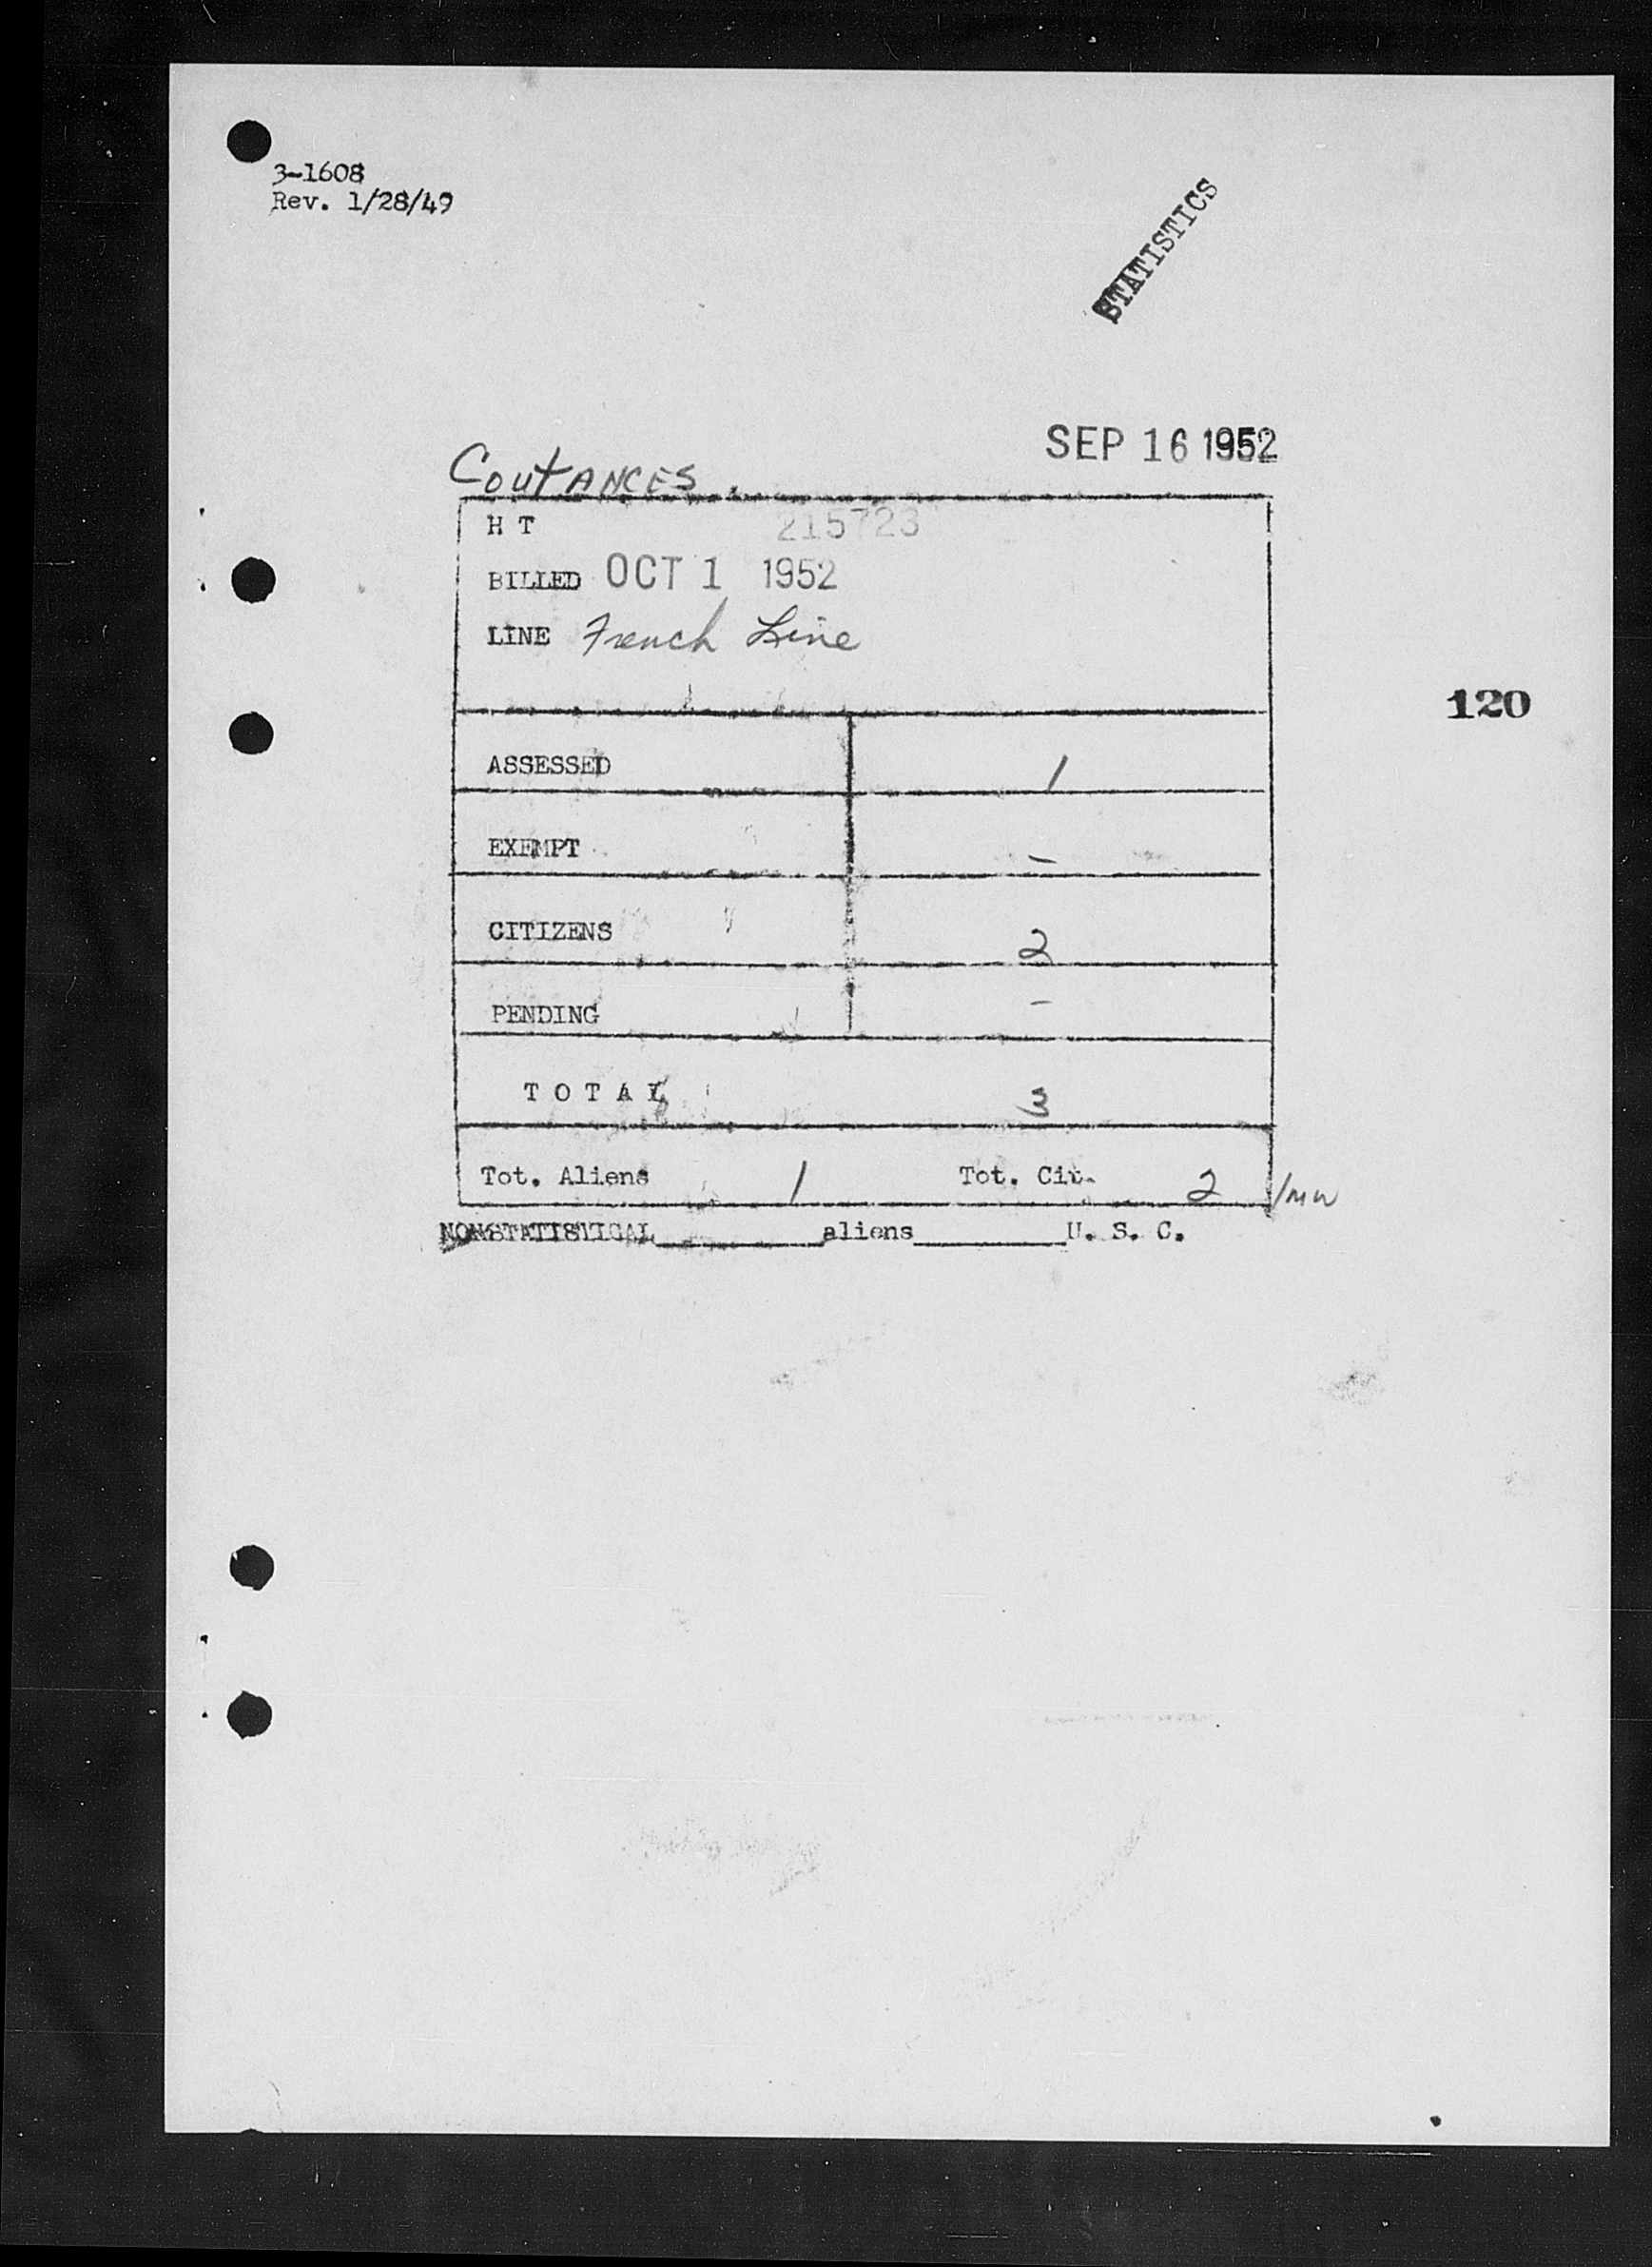 3-1608
Rev. 1/28/49
STATISTICS
SEP 16 1952
COUTANCES.
H T 215723
BILLED OCT 1 1952
LINE French Line
120
ASSESSED 1
EXEMPT –
CITIZENS 2
PENDING –
T O T A L 3
Tot. Aliens 1 Tot. Cit. 2 /mw
NONSTATISTICAL__________aliens__________U. S. C.